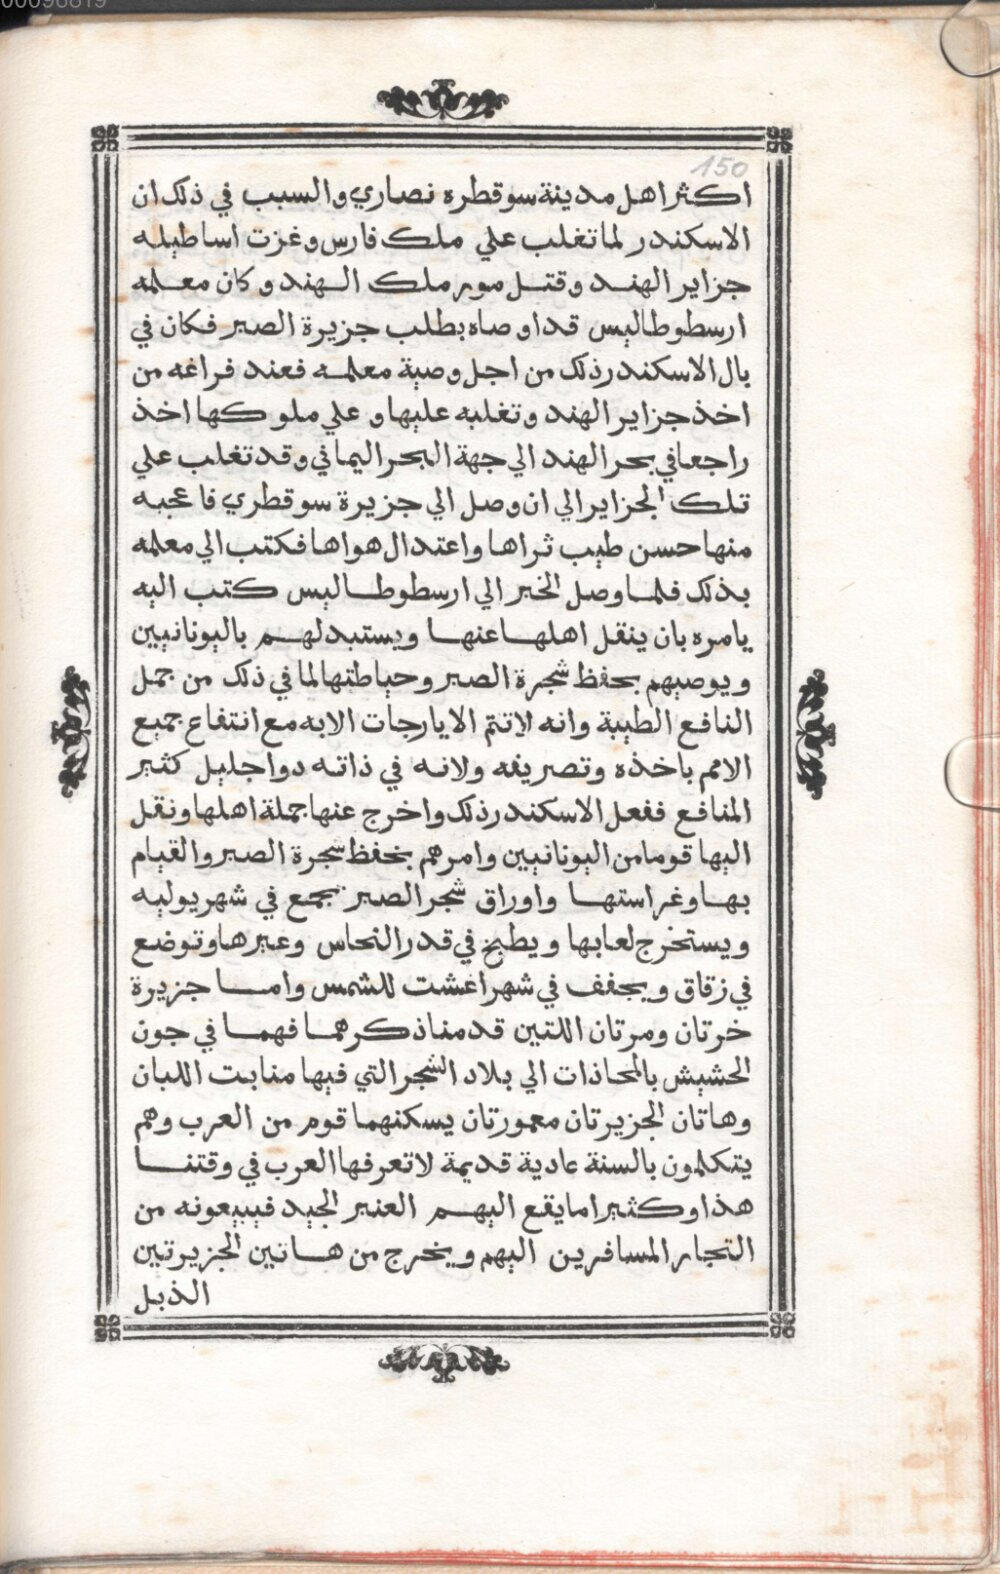 150
اكثر اهل مدينة سوقطره نصاري والسبب في ذلك ان
الاسكندر لما تغلب علي ملك فارس وغزت اساطيله
جزاير الهند وقتل مور ملك الهند وكان معلمه
ارسطوطاليس قد اوصاه بطلب جزيرة الصبر فكان في
بال الاسكندر ذلك من اجل وصية معلمه فعند فراغه من
اخذ جزاير الهند وتغلبه عليها وعلي ملوكها اخذ
راجعا في بحر الهند الي جهة البحر اليماني وقد تغلب علي
تلك الجزاير الي ان وصل الي جزيرة سوقطري فاعجبه
منها حسن طيب ثراها واعتدال هواها فكتب الي معلمه
بذلك فلما وصل الخبر الي ارسطوطاليس كتب اليه
يامره بان ينقل اهلها عنها ويستبدلهم باليونانيين
ويوصيهم بحفظ شجرة الصبر وحياطتها لما في ذلك من جمل
النافع الطبية وانه لا تتم الايارجات الا به مع انتفاع جميع
الامم باخذه وتصريفه ولانه في ذاته دوا جليل كثير
المنافع ففعل الاسكندر ذلك واخرج عنها جملة اهلها ونقل
اليها قوما من اليونانيين وامرهم بخفظ سجرة الصبر والقيام
بها وغراستها واوراق شجر الصبر تجمع في شهر يوليه
ويستخرج لعابها ويطبخ في قدر النحاس وعيرها وتوضع
في زقاق ويجفف في شهر اغشت للشمس واما جزيرة
خرتان ومرتان اللتين قدمنا ذكرهما فهما في جون
الحشيش بالمحاذات الي بلاد الشجر التي فيها منابت اللبان
وهاتان الجزيرتان معمورتان يسكنهما قوم من العرب وهم
يتكلمون بالسنة عادية قديمة لا تعرفها العرب في وقتنا
هذا وكثيرا ما يقع اليهم العنبر الجيد فيبيعونه من
التجار المسافرين اليهم ويخرج من هاتين الجزيرتين
الذبل